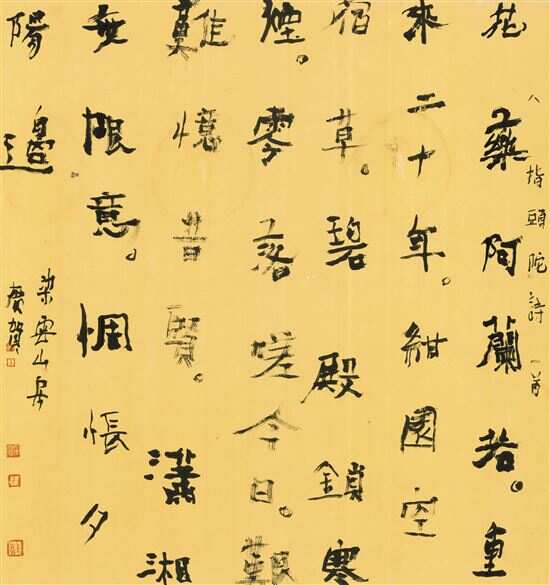 八指頭陀詩一首
花藥阿蘭若。重
來二十年。紺園空
宿草。碧殿鎖寒
煙。零落嗟今日。艱
難憶昔賢。瀟湘
無限意。惆悵夕
陽邊
雲山房